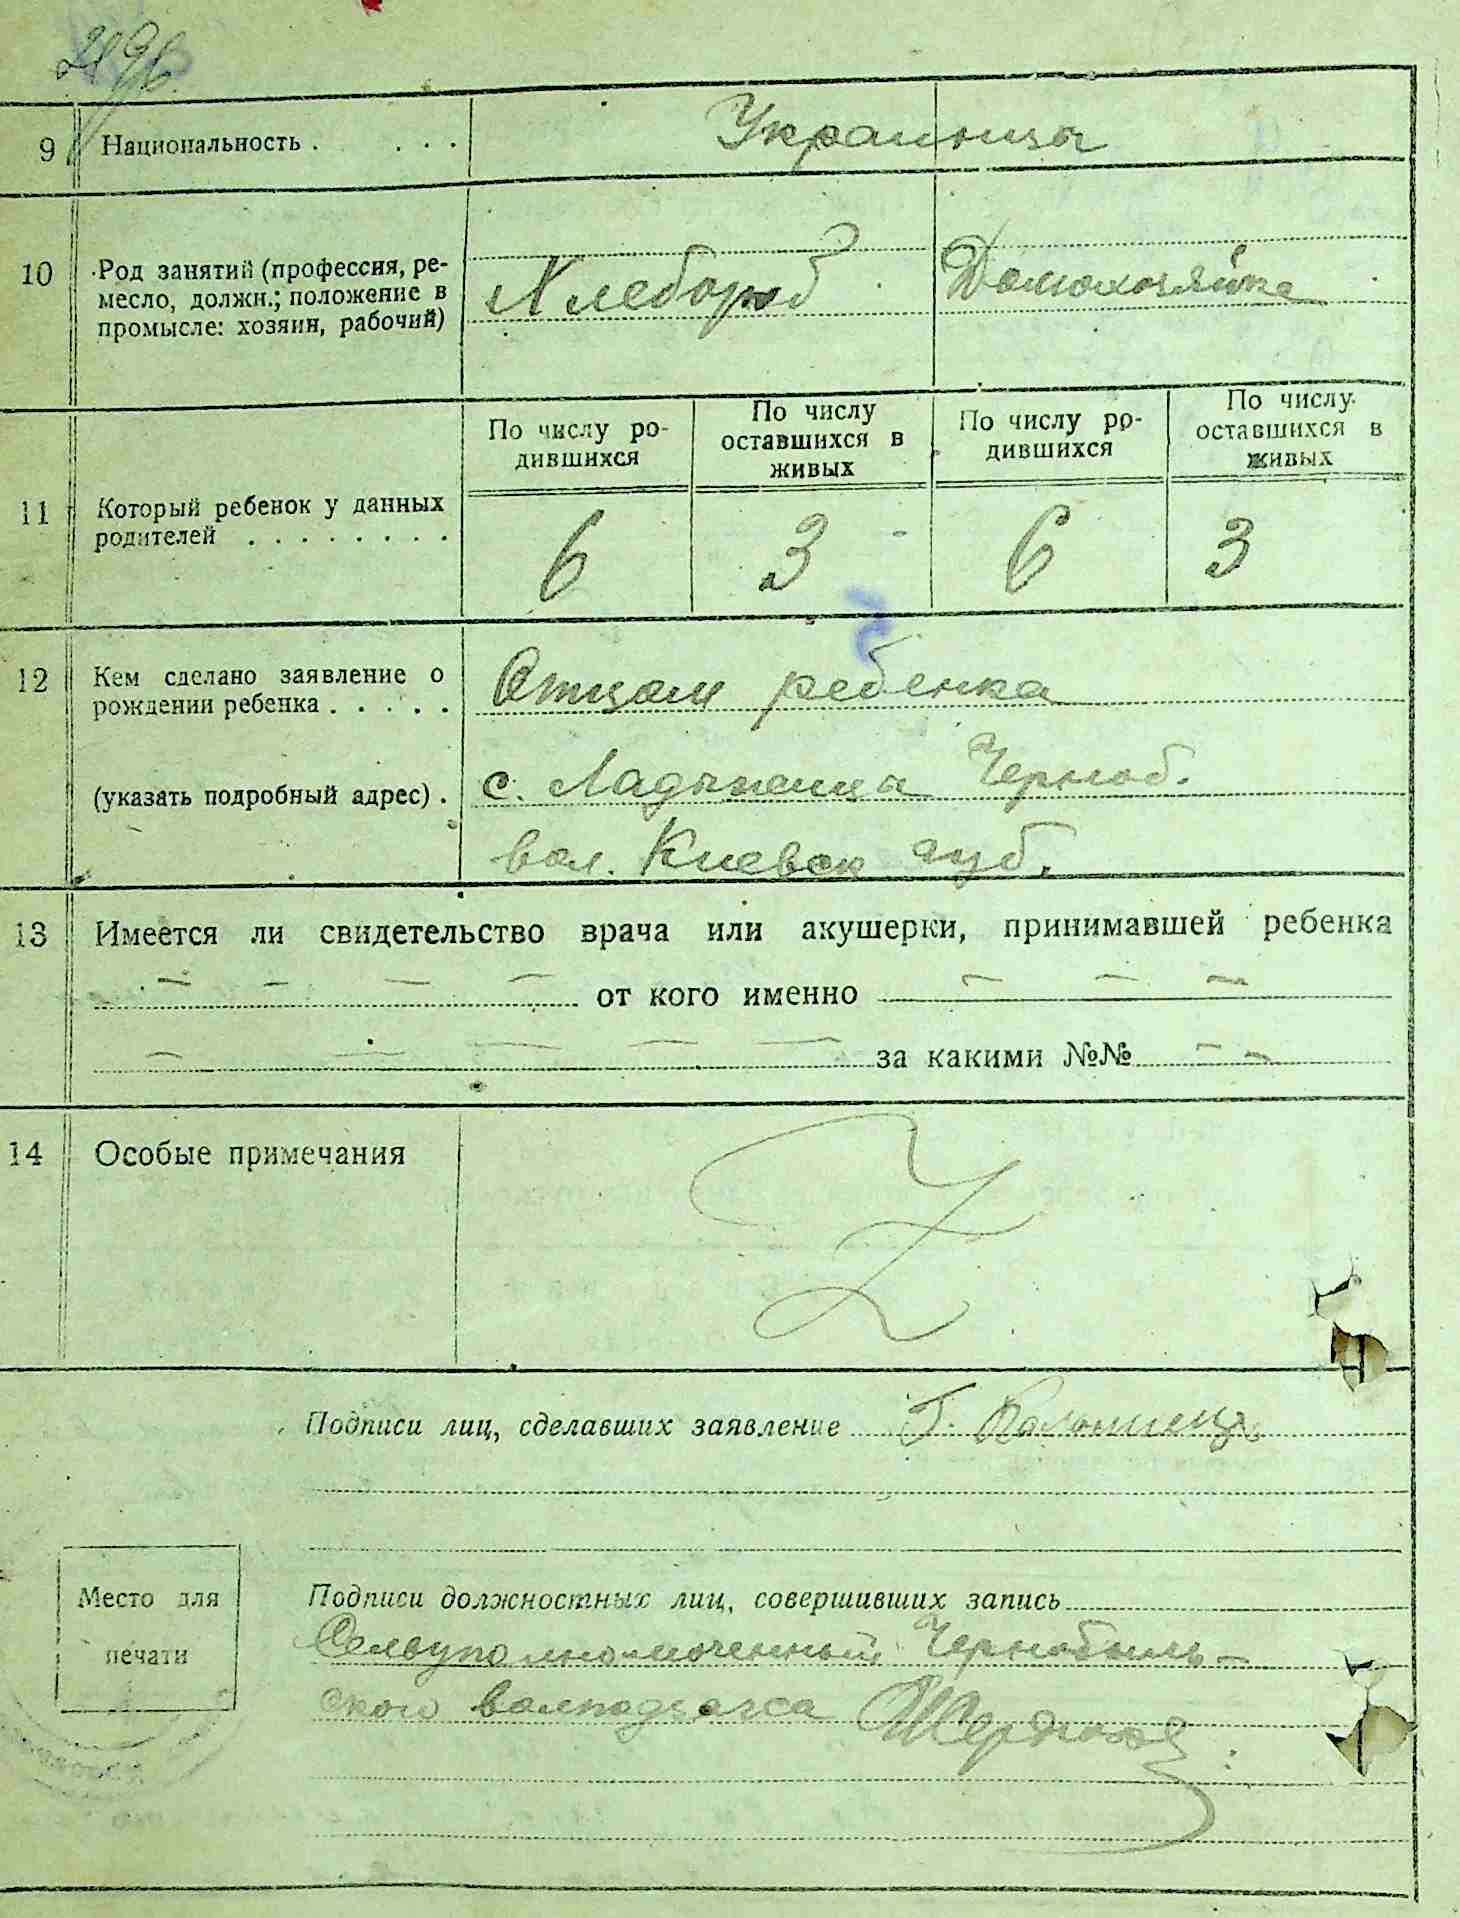 9 Национальность . . . . Украинцы
10 Род занятий (профессия, ре-
месло, должн.; положение в
промысле: хозяин, рабочий)
Хлебороб Домохозяйка
По числу ро-
дившихся
По числу
оставшихся в
живых
По числу ро-
дившихся
По числу
оставшихся в
живых
11 Который ребенок у данных
родителей . . . . . . . .
6 3 6 3
12 Кем сделано заявление о
рождении ребенка . . . . .
Отцом ребенка
(указать подробный адрес) .
с. Ладыжичи Черноб.
вол. Киевск губ.
13 Имеется ли свидетельство врача или акушерки, принимавшей ребенка
— — — — от кого именно — — —
— — — — — за какими №№ — —
14 Особые примечания
Z
Подписи лиц, сделавших заявление Г. Коломиец
Место для
печати
Подписи должностных лиц, совершивших запись
Сельуполномоченный Чернобыль-
ского волподзагса